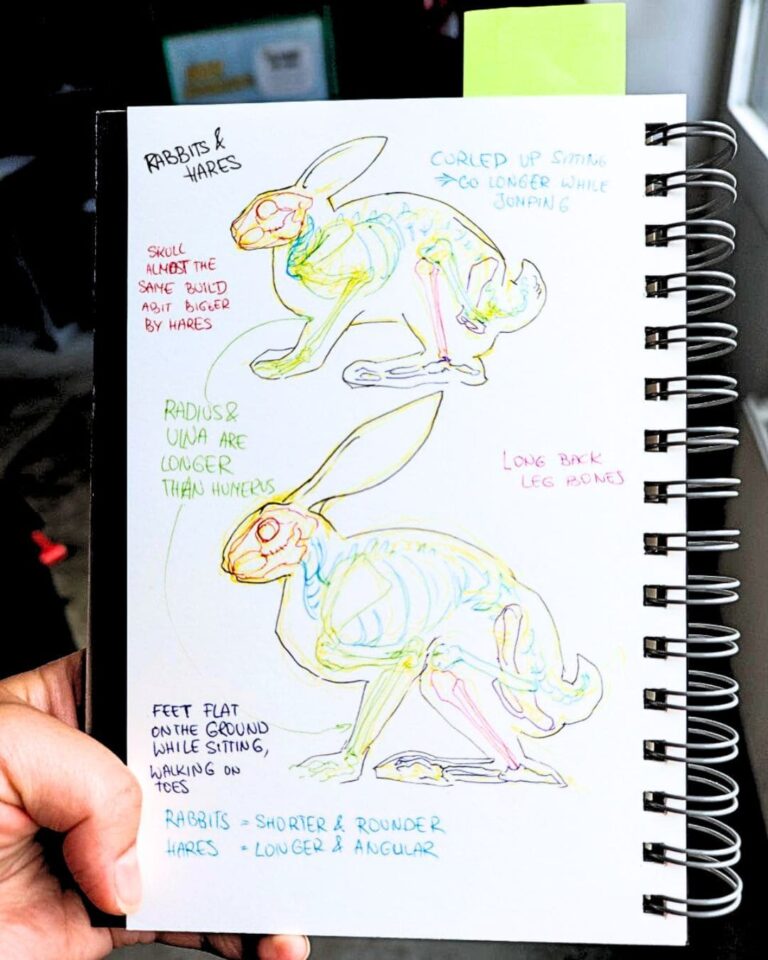 RABBITS &
HARES
CURLED UP SITTING
⇒ GO LONGER WHILE
JUMPING
SKULL
ALMOST THE
SAME BUILD
A BIT BIGGER
BY HARES
RADIUS &
ULNA ARE
LONGER
THAN HUMERUS
LONG BACK
LEG BONES
FEET FLAT
ON THE GROUND
WHILE SITTING,
WALKING ON
TOES
RABBITS = SHORTER & ROUNDER
HARES = LONGER & ANGULAR